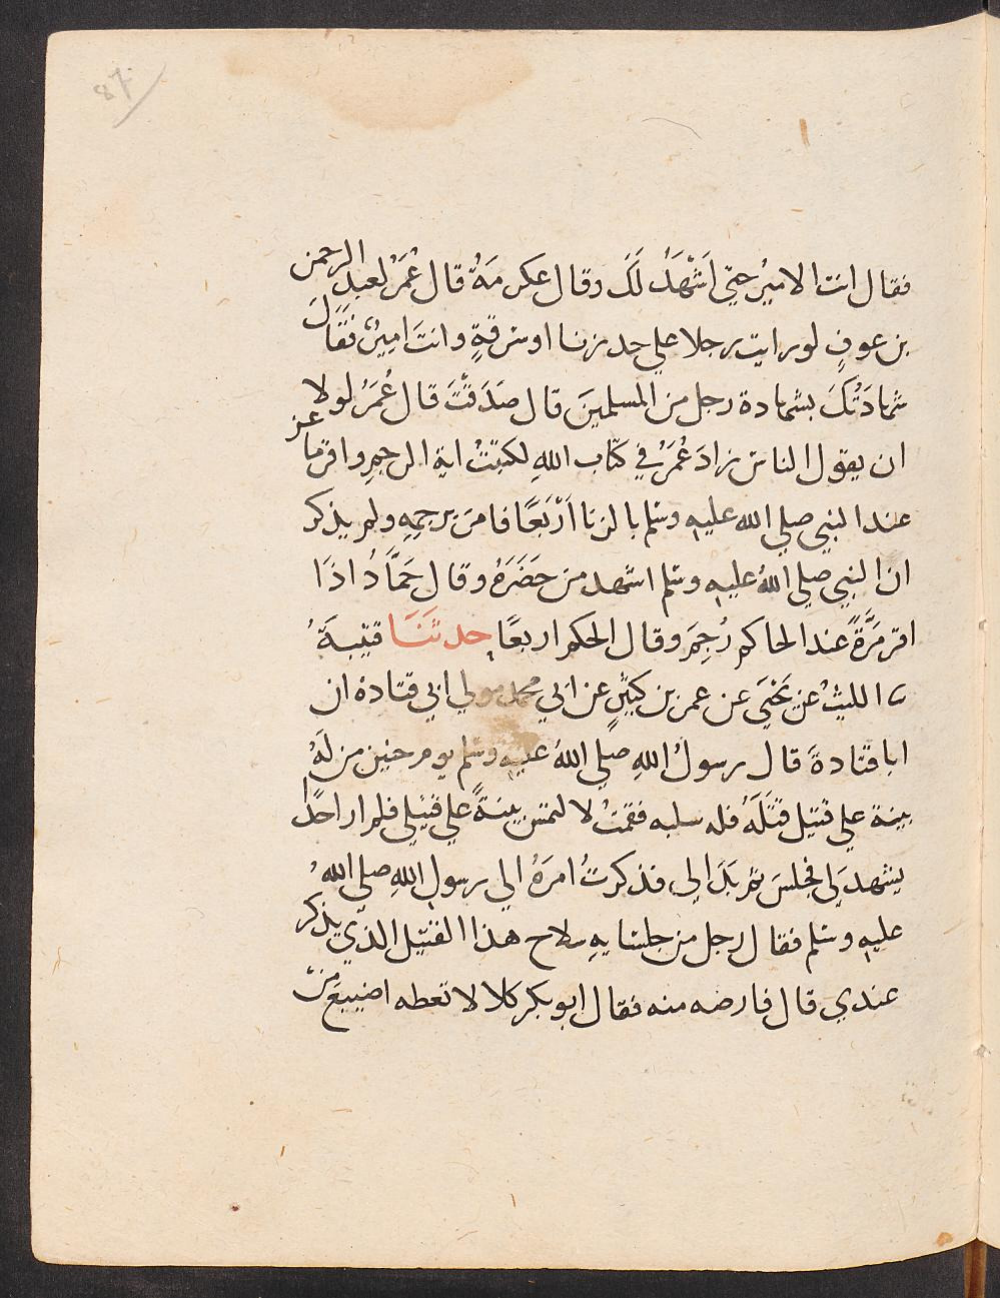 87
فقال انت الامير حتي اَشْهَدُ لَكَ وقال عكرمَةُ قال عُمَرُ لعبد الرحمن
بن عوفٍ لو رايت رجلا علي حد زنا او سرقةٍ وانتَ اميرٌ فقَالَ
شهادَتُكَ بشهادة رجل من المسلمينَ قال صَدَقْتَ قال عُمَرُ لولا
ان يقول الناس زادَ عُمَرُ في كتاب اللهِ لكتبتُ اية الرجمِ واقر ماعز
عند النبي صلي الله عليه وسلم بالزنا اَرْبَعًا فامرَ برجمِهِ ولم يذكر
ان النبي صلي اللهُ عليه وسلم اشهد من حَضَرَهُ وقال حَمَّادُ اذَا
اقر مَرَّةً عند الحاكم رُجِمَ وقال الحكم اربعًا حدثَنَا قتيبَةُ
ثا الليثُ عن يَحْيَى عن عمر بن كثيرٍ عن ابي محمد مولي ابي قتادة ان
ابا قتادةَ قال رسولُ اللهِ صلي اللهُ عليه وسلم يوم حنين من لَهُ
بينة علي قتيل قتَلَهُ فله سلبه فقمتُ لالتمس بينةً علي قتيلي فلم ار احدًا
يشهد لي فجلسَ ثم بدَا لي فذكرتُ امرَهُ الي رسولِ اللهِ صلي اللهُ
عليه وسلم فقال رجل من جلسايِهِ سلاح هذا القتيل الذي يذكر
عندي قال فارضه منه فقال ابو بكر كلا لا تعطه اضيبع من